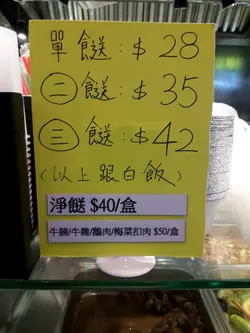 單餸：$28
二餸：$35
三餸：$42
（以上跟白飯）
淨餸 $40/盒
牛腩/牛雜/鵝肉/梅菜扣肉 $50/盒